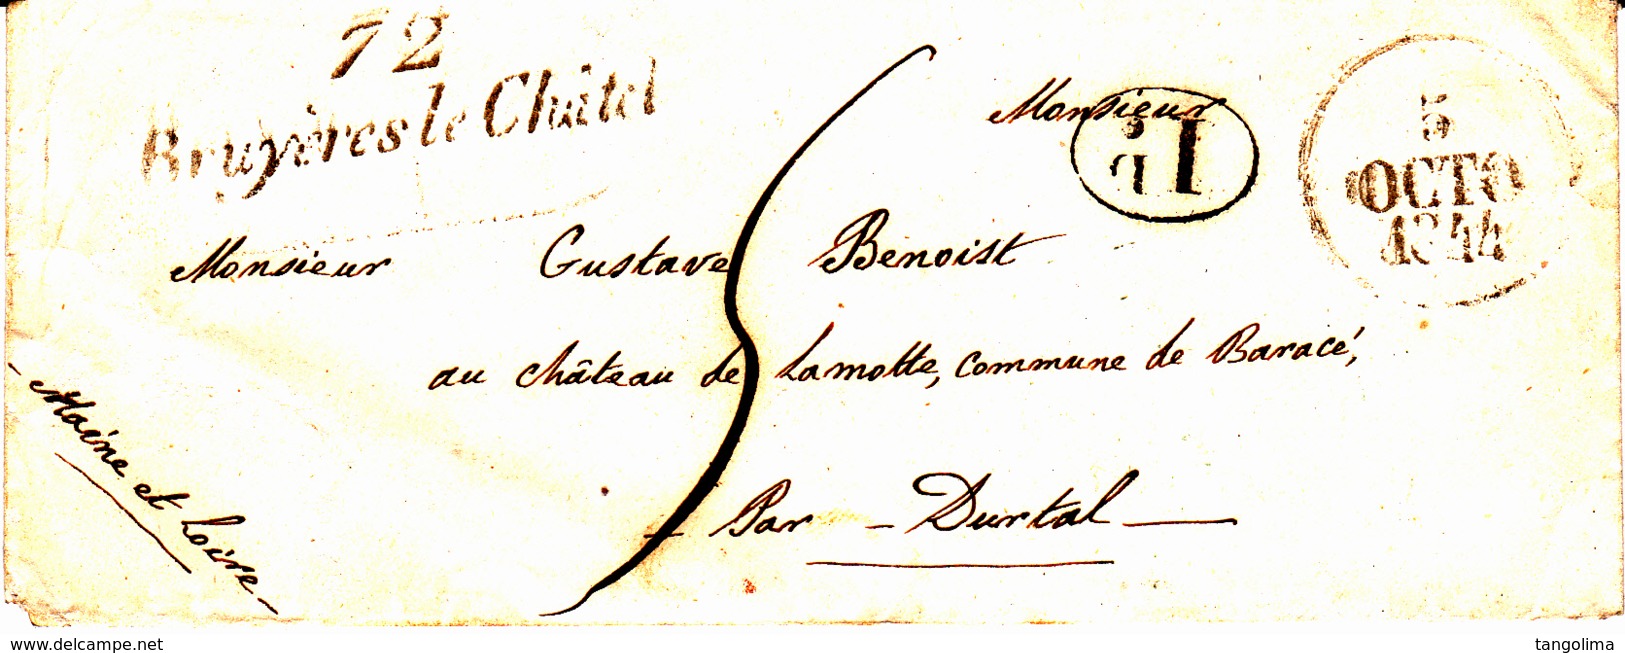 72
Bruyères le Châtel
Monsieur
5
OCTO
1844
Monsieur Gustave Benoist
au château de Lamotte, commune de Baracé,
Par - Durtal -
- Maine et Loire -
delcampe.net
tangolima